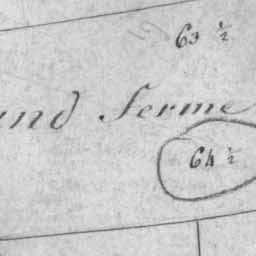 63 ½
and Ferme
64 ½